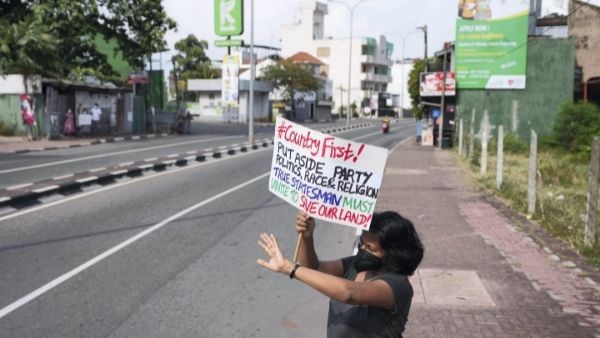 #Country First!
PUT ASIDE PARTY
POLITICS, RACE & RELIGION
TRUE STATESMAN MUST
UNITE TO SAVE OUR LAND!
K
APPLY NOW